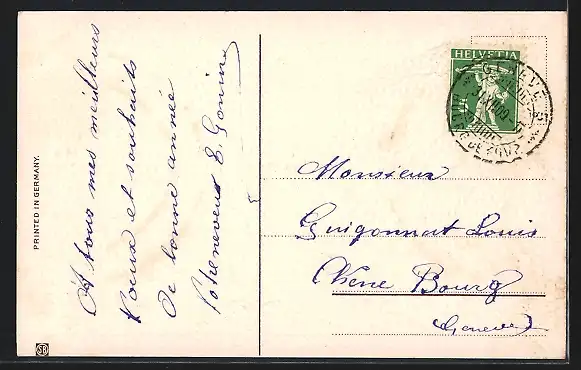 PRINTED IN GERMANY.
A tous mes meilleurs
Voeux et souhaits
De bonne année
Votre neveu E. Gonin
HELVETIA
Monsieur
Guigonnat Louis
Chêne Bourg
Genève